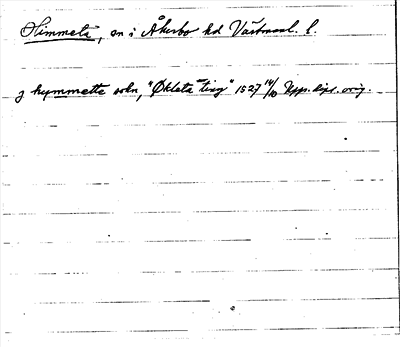 Himmeta, sn i Åkerbo hd Västmanl. l.
j hymmette sokn, "Økleta ting" 1527 14/10 Upp. dipl. orig.